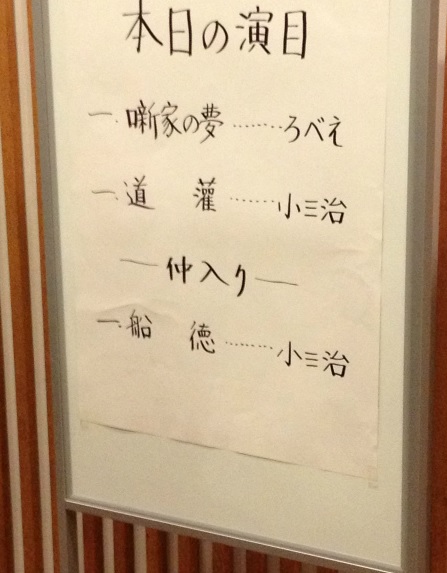 本日の演目
一. 噺家の夢 ……… ろべえ
一. 道 灌 ……… 小三治
― 仲入り ―
一. 船 徳 ……… 小三治